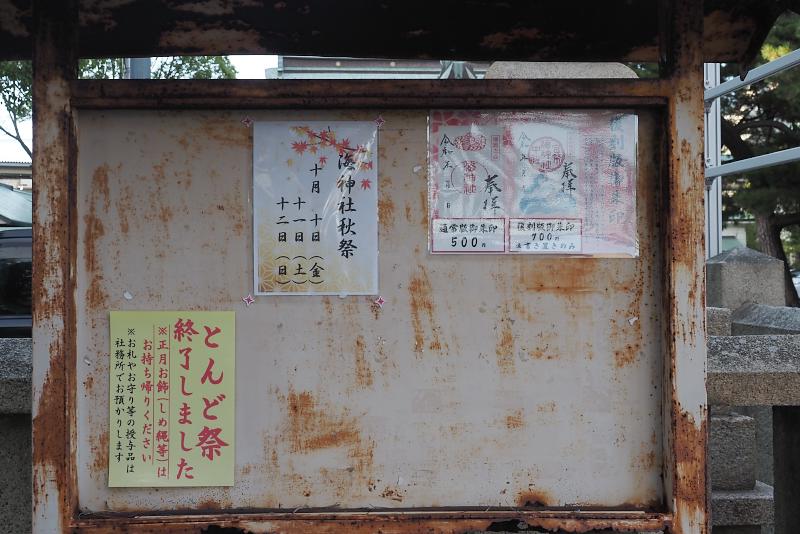 海神社秋祭
十月 十日(金)
十一日(土)
十二日(日)
復刻版御朱印
奉拝
奉拝
通常版御朱印
500円
復刻版御朱印
700円
とんど祭
終了しました
※正月お飾(しめ縄等)は
お持ち帰りください
※お札やお守り等の授与品は
社務所でお預かりします